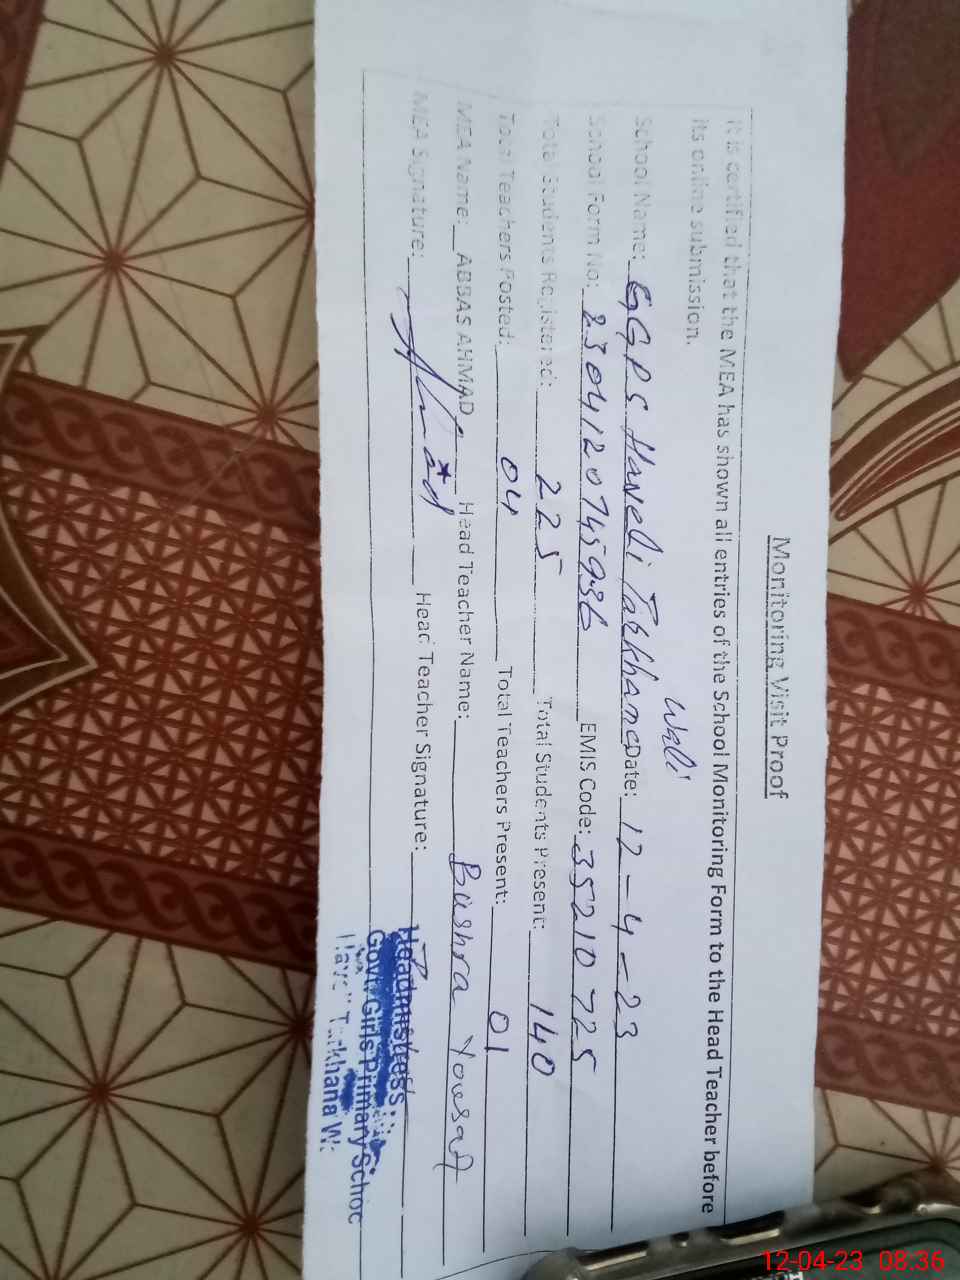 Monitoring Visit Proof
It is certified that the MEA has shown all entries of the School Monitoring Form to the Head Teacher before
its online submission.
Walli
School Name: GGPS Haveli Tarkhana Date: 12-4-23
School Form No: 2304120745936 EMIS Code: 35210725
Total Students Registered: 225 Total Students Present: 140
Total Teachers Posted: 04 Total Teachers Present: 01
MEA Name: ABBAS AHMAD Head Teacher Name: Bushra Yousaf
MEA Signature: Head Teacher Signature:
Headmistress
Govt. Girls Primary School
Haveli Tarkhana W
12-04-23 08:36